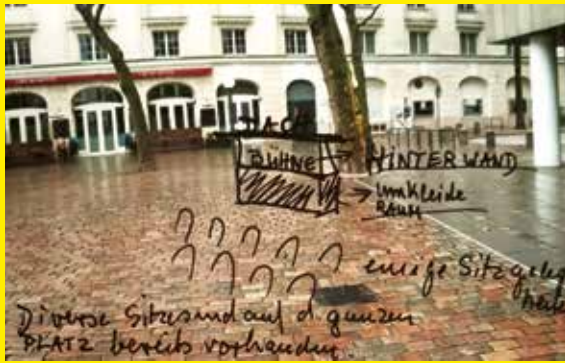 DACH
BÜHNE
HINTERWAND
Umkleide
RAUM
einige Sitzgelegen
heite
Diverse Sitze sind auf d ganzen
PLATZ bereits vorhanden.